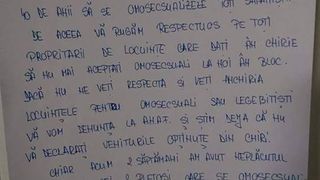 40 DE AHII SĂ SE OMOSECSUALIZEZE TOTI
DE ACEEA VĂ RUGĂM RESPECTUOS PE TOTI
PROPRITARII DE LOCUINTE CARE DATI ÎN CHIRIE
SĂ NU MAI ACEPTATI OMOSECSUALI LA NOI ÎN BLOC.
DACĂ NU NE VETI RESPECTA SI VETI ANCHIRIA
LOCUINTELE PENTRU OMOSECSUALI SAU LEGEBITISTI
VĂ VOM DENUNTA LA A.N.A.F. SI STIM DEJA CĂ NU
VĂ DECLARATI VENITURILE OPTINUTE DIN CHIRI.
CHIAR ACUM 2 SĂPTĂMÂNI AM AVUT NEPLĂCUTUL
2 PLETOSI CARE SE OMOSECSUAL